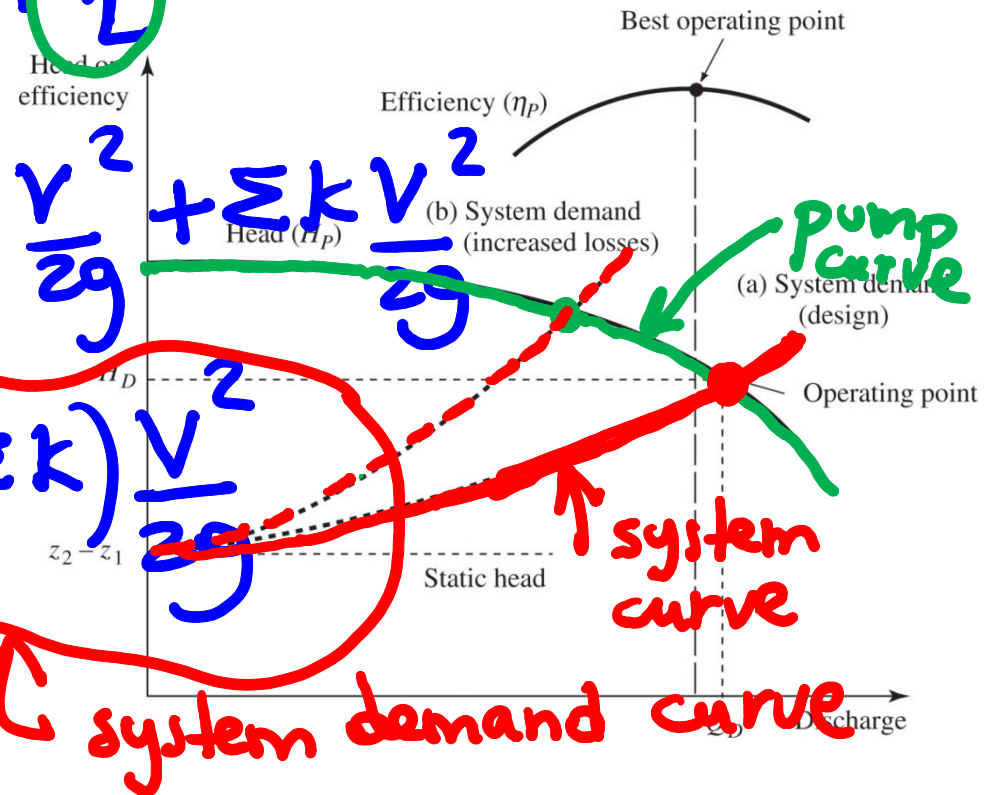 L
Best operating point
Head or
efficiency
Efficiency (ηP)
V²/2g + Σk V²/2g
(b) System demand
(increased losses)
Head (HP)
pump
curve
(a) System demand
(design)
HD
Operating point
Σk) V²/2g
z₂ − z₁
Static head
system
curve
system demand curve
QD
Discharge